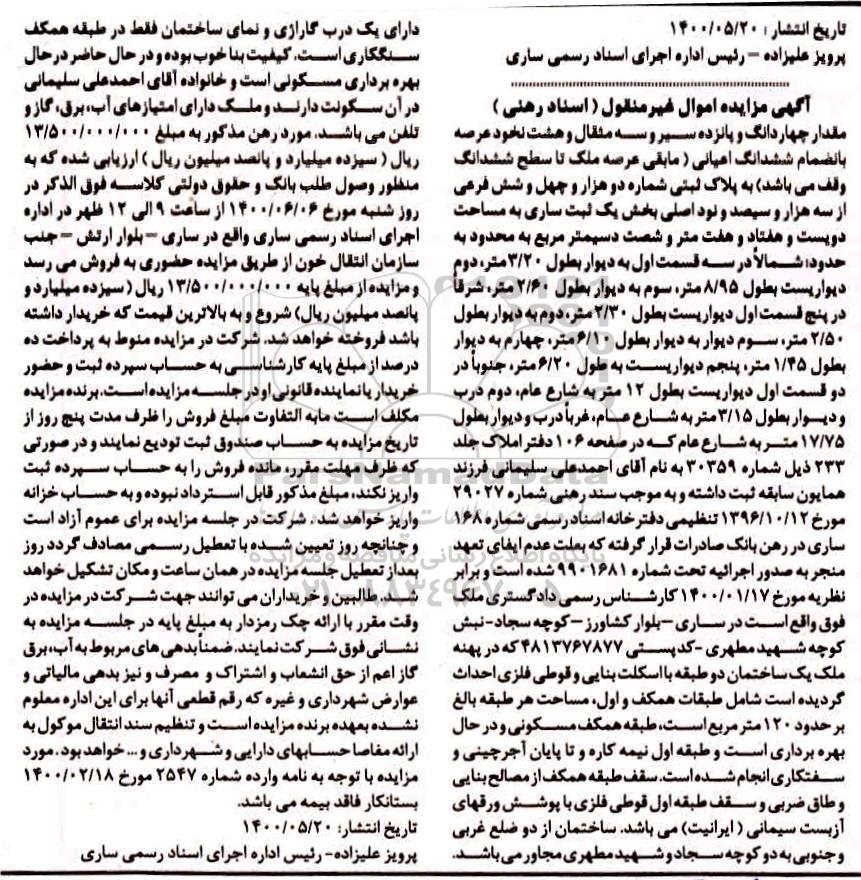 تاریخ انتشار : ۱۴۰۰/۰۵/۲۰
پرویز علیزاده – رئیس اداره اجرای اسناد رسمی ساری
آگهی مزایده اموال غیرمنقول ( اسناد رهنی )
مقدار چهاردانگ و پانزده سیر و سه مثقال و هشت نخود عرصه
بانضمام ششدانگ اعیانی ( مابقی عرصه ملک تا سطح ششدانگ
وقف می باشد) به پلاک ثبتی شماره دو هزار و چهل و شش فرعی
از سه هزار و سیصد و نود اصلی بخش یک ثبت ساری به مساحت
دویست و هفتاد و هفت متر و شصت دسیمتر مربع به محدود به
حدود: شمالاً در سه قسمت اول به دیوار بطول ۳/۲۰ متر، دوم
دیواریست بطول ۸/۹۵ متر، سوم به دیوار بطول ۲/۶۰ متر، شرقاً
در پنج قسمت اول دیواریست بطول ۲/۳۰ متر، دوم به دیوار بطول
۲/۵۰ متر، سوم دیوار به دیوار بطول ۶/۱۰متر، چهارم به دیوار
بطول ۱/۴۵ متر، پنجم دیواریست به طول ۶/۲۰متر، جنوباً در
دو قسمت اول دیواریست بطول ۱۲ متر به شارع عام، دوم درب
و دیوار بطول ۳/۱۵متر به شارع عام، غرباً درب و دیوار بطول
۱۷/۷۵ متر به شارع عام که در صفحه ۱۰۶ دفتر املاک جلد
۲۳۳ ذیل شماره ۳۰۳۵۹ به نام آقای احمدعلی سلیمانی فرزند
همایون سابقه ثبت داشته و به موجب سند رهنی شماره ۲۹۰۲۷
مورخ ۱۳۹۶/۱۰/۱۲ تنظیمی دفترخانه اسناد رسمی شماره ۱۶۸
ساری در رهن بانک صادرات قرار گرفته که بعلت عدم ایفای تعهد
منجر به صدور اجرائیه تحت شماره ۹۹۰۱۶۸۱ شده است و برابر
نظریه مورخ ۱۴۰۰/۰۱/۱۷ کارشناس رسمی دادگستری ملک
فوق واقع است در ساری – بلوار کشاورز – کوچه سجاد- نبش
کوچه شهید مطهری -کدپستی ۴۸۱۳۷۶۷۸۷۷ که در پهنه
ملک یک ساختمان دو طبقه با اسکلت بنایی و قوطی فلزی احداث
گردیده است شامل طبقات همکف و اول، مساحت هر طبقه بالغ
بر حدود ۱۲۰ متر مربع است، طبقه همکف مسکونی و در حال
بهره برداری است و طبقه اول نیمه کاره و تا پایان آجرچینی و
سفتکاری انجام شده است. سقف طبقه همکف از مصالح بنایی
و طاق ضربی و سقف طبقه اول قوطی فلزی با پوشش ورقهای
آزبست سیمانی ( ایرانیت) می باشد. ساختمان از دو ضلع غربی
و جنوبی به دو کوچه سجاد و شهید مطهری مجاور می باشد.
دارای یک درب گاراژی و نمای ساختمان فقط در طبقه همکف
سنگکاری است. کیفیت بنا خوب بوده و در حال حاضر در حال
بهره برداری مسکونی است و خانواده آقای احمدعلی سلیمانی
در آن سکونت دارند و ملک دارای امتیازهای آب، برق، گاز و
تلفن می باشد. مورد رهن مذکور به مبلغ ۱۳/۵۰۰/۰۰۰/۰۰۰
ریال ( سیزده میلیارد و پانصد میلیون ریال ) ارزیابی شده که به
منظور وصول طلب بانک و حقوق دولتی کلاسه فوق الذکر در
روز شنبه مورخ ۱۴۰۰/۰۶/۰۶ از ساعت ۹ الی ۱۲ ظهر در اداره
اجرای اسناد رسمی ساری واقع در ساری – بلوار ارتش – جنب
سازمان انتقال خون از طریق مزایده حضوری به فروش می رسد
و مزایده از مبلغ پایه ۱۳/۵۰۰/۰۰۰/۰۰۰ ریال ( سیزده میلیارد و
پانصد میلیون ریال) شروع و به بالاترین قیمت که خریدار داشته
باشد فروخته خواهد شد. شرکت در مزایده منوط به پرداخت ده
درصد از مبلغ پایه کارشناسی به حساب سپرده ثبت و حضور
خریدار یا نماینده قانونی او در جلسه مزایده است. برنده مزایده
مکلف است مابه التفاوت مبلغ فروش را ظرف مدت پنج روز از
تاریخ مزایده به حساب صندوق ثبت تودیع نمایند و در صورتی
که ظرف مهلت مقرر، مانده فروش را به حساب سپرده ثبت
واریز نکند، مبلغ مذکور قابل استرداد نبوده و به حساب خزانه
واریز خواهد شد . شرکت در جلسه مزایده برای عموم آزاد است
و چنانچه روز تعیین شده با تعطیل رسمی مصادف گردد روز
بعد از تعطیل جلسه مزایده در همان ساعت و مکان تشکیل خواهد
شد. طالبین و خریداران می توانند جهت شرکت در مزایده در
وقت مقرر با ارائه چک رمزدار به مبلغ پایه در جلسه مزایده به
نشانی فوق شرکت نمایند. ضمناً بدهی های مربوط به آب، برق
گاز اعم از حق انشعاب و اشتراک و مصرف و نیز بدهی مالیاتی و
عوارض شهرداری و غیره که رقم قطعی آنها برای این اداره معلوم
نشده بعهده برنده مزایده است و تنظیم سند انتقال موکول به
ارائه مفاصا حسابهای دارایی و شهرداری و ... خواهد بود . مورد
مزایده با توجه به نامه وارده شماره ۲۵۴۷ مورخ ۱۴۰۰/۰۲/۱۸
بستانکار فاقد بیمه می باشد.
تاریخ انتشار: ۱۴۰۰/۰۵/۲۰
پرویز علیزاده- رئیس اداره اجرای اسناد رسمی ساری
ParsNamadData
پایگاه اطلاع رسانی مناقصه و مزایده